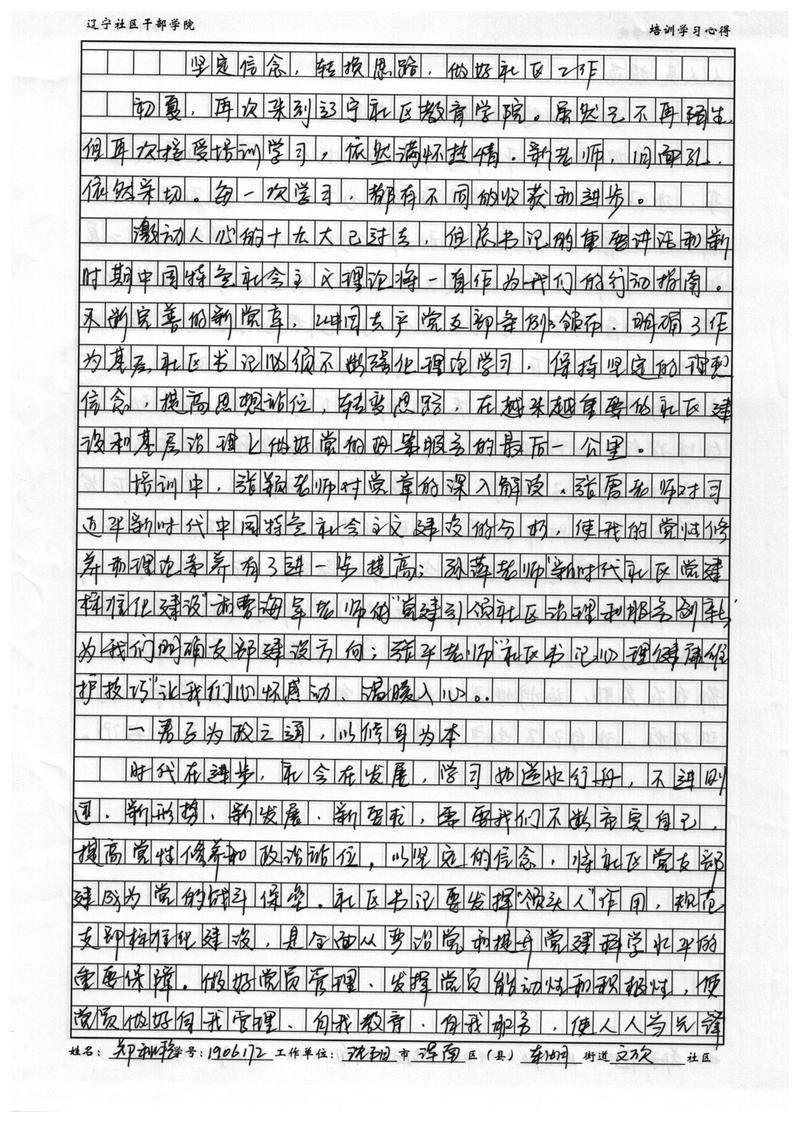 辽宁社区干部学院 培训学习心得
坚定信念，转换思路，做好社区工作
初夏，再次来到辽宁社区教育学院。虽然已不再陌生
但再次接受培训学习，依然满怀热情。新老师，旧面孔，
依然亲切。每一次学习，都有不同的收获和进步。
激动人心的十九大已过去，但总书记的重要讲话和新
时期中国特色社会主义理论将一直作为我们的行动指南。
不断完善的新党章，《中国共产党支部条例》颁布，明确了作
为基层社区书记必须不断强化理论学习，保持坚定的理想
信念，提高思想站位，转变思路，在越来越重要的社区建
设和基层治理上做好党的政策服务的最后一公里。
培训中，张颖老师对党章的深入解读、张雷老师对习
近平新时代中国特色社会主义建设的分析，使我的党性修
养和理论素养有了进一步提高；孙萍老师"新时代社区党建
标准化建设"和曹海军老师的"党建引领社区治理和服务创新"
为我们明确支部建设方向；张平老师"社区书记心理健康维
护技巧"让我们心怀感动、温暖入心。
一、君子为政之道，以修身为本
时代在进步，社会在发展，学习如逆水行舟，不进则
退。新形势、新发展、新要求，需要我们不断充实自己，
提高党性修养和政治站位，以坚定的信念，将社区党支部
建成为党的战斗保垒。社区书记要发挥"领头人"作用，规范
支部标准化建设，是全面从严治党和提升党建科学水平的
重要保障。做好党员管理、发挥党员能动性和积极性，使
党员做好自我管理、自我教育、自我服务，使人人当先锋
姓名： 郑 学号：1906172 工作单位：沈阳 市 浑南 区（县） 东湖 街道 文汇 社区